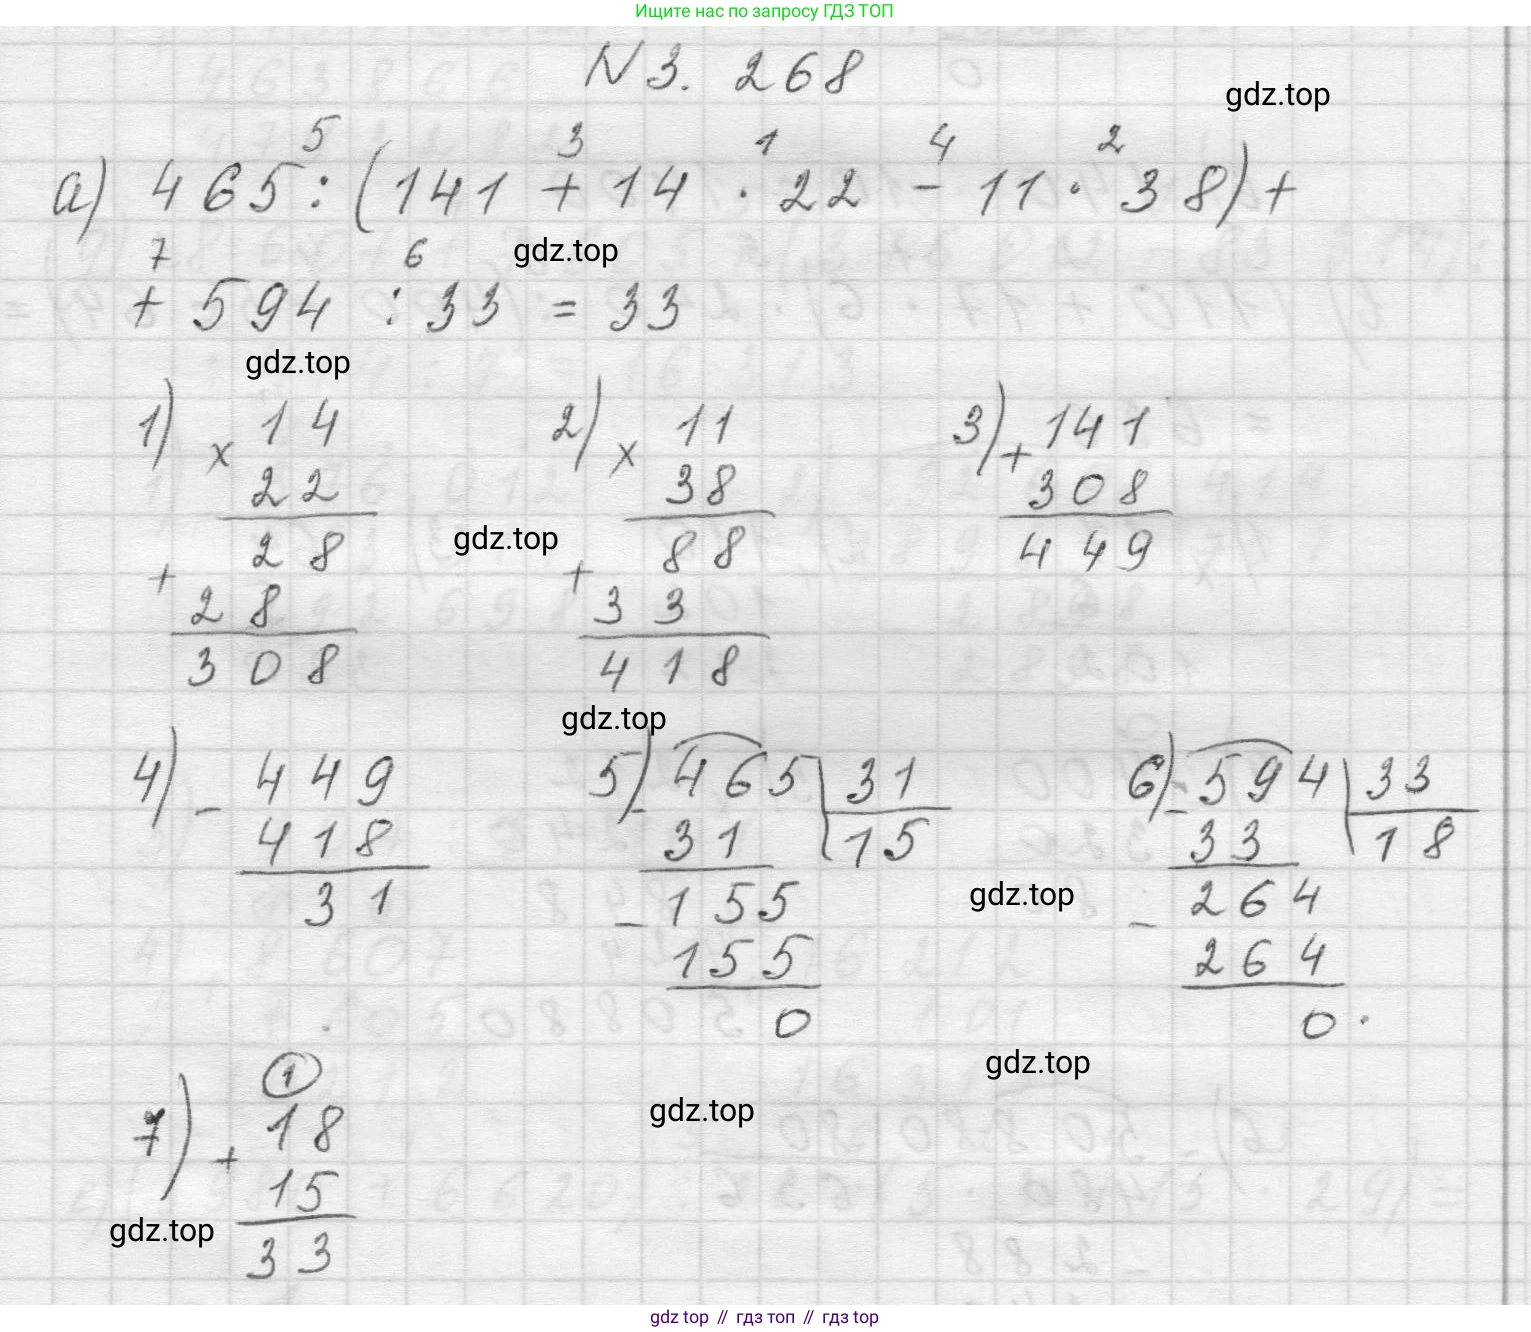 Ищите нас по запросу ГДЗ ТОП
N 3. 268
gdz.top
5 3 1 4 2
а) 465 : (141 + 14 · 22 - 11 · 38) +
7 6
gdz.top
+ 594 : 33 = 33
gdz.top
1) × 14
22
28
+
28
308
2) × 11
38
88
+
33
418
3) + 141
308
449
gdz.top
gdz.top
4) - 449
418
31
5) - 465 31
31 15
- 155
155
0
6) - 594 33
33 18
- 264
264
0
gdz.top
gdz.top
gdz.top
1
7) + 18
15
33
gdz.top
gdz top // гдз топ // гдз top